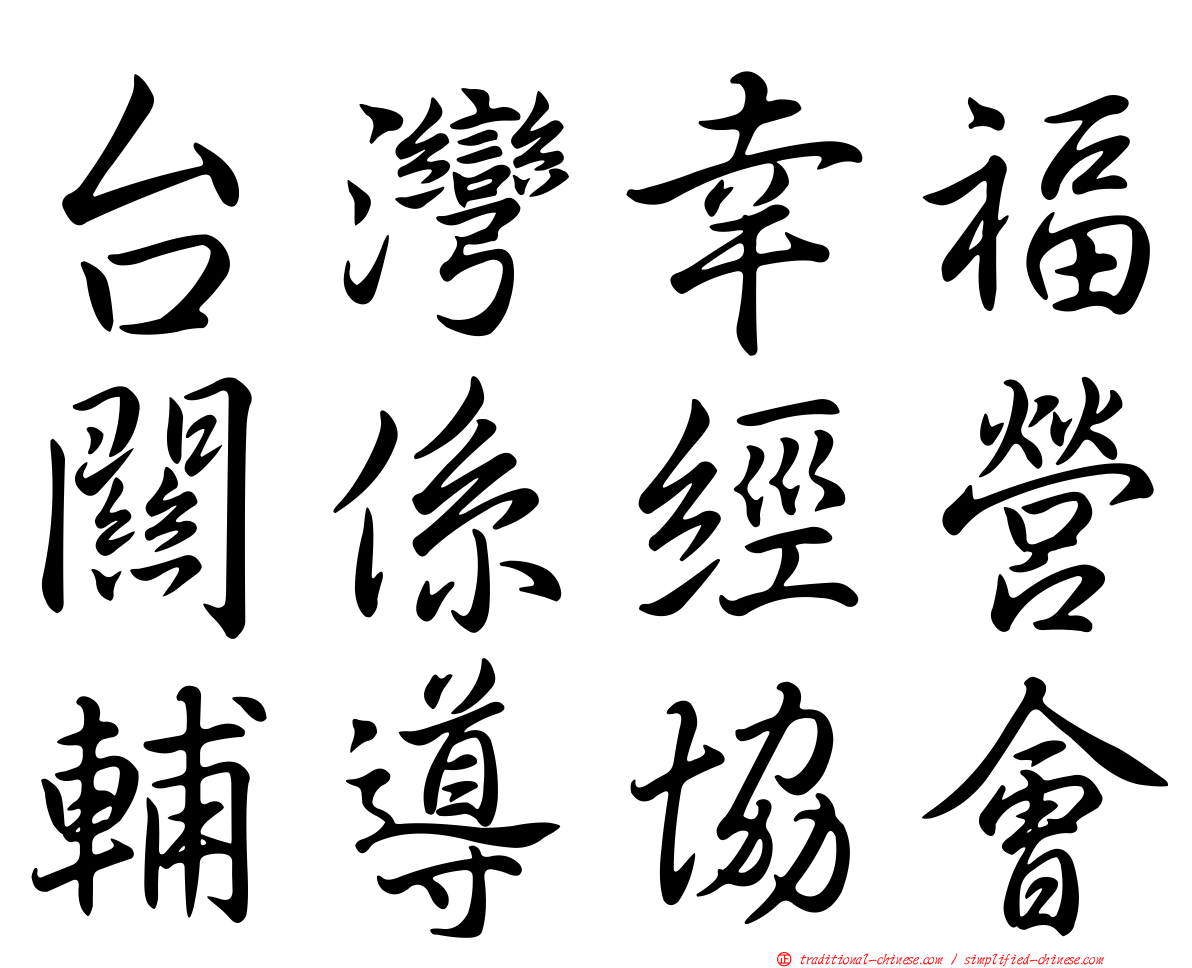 台灣幸福
關係經營
輔導協會
正 traditional-chinese.com / simplified-chinese.com